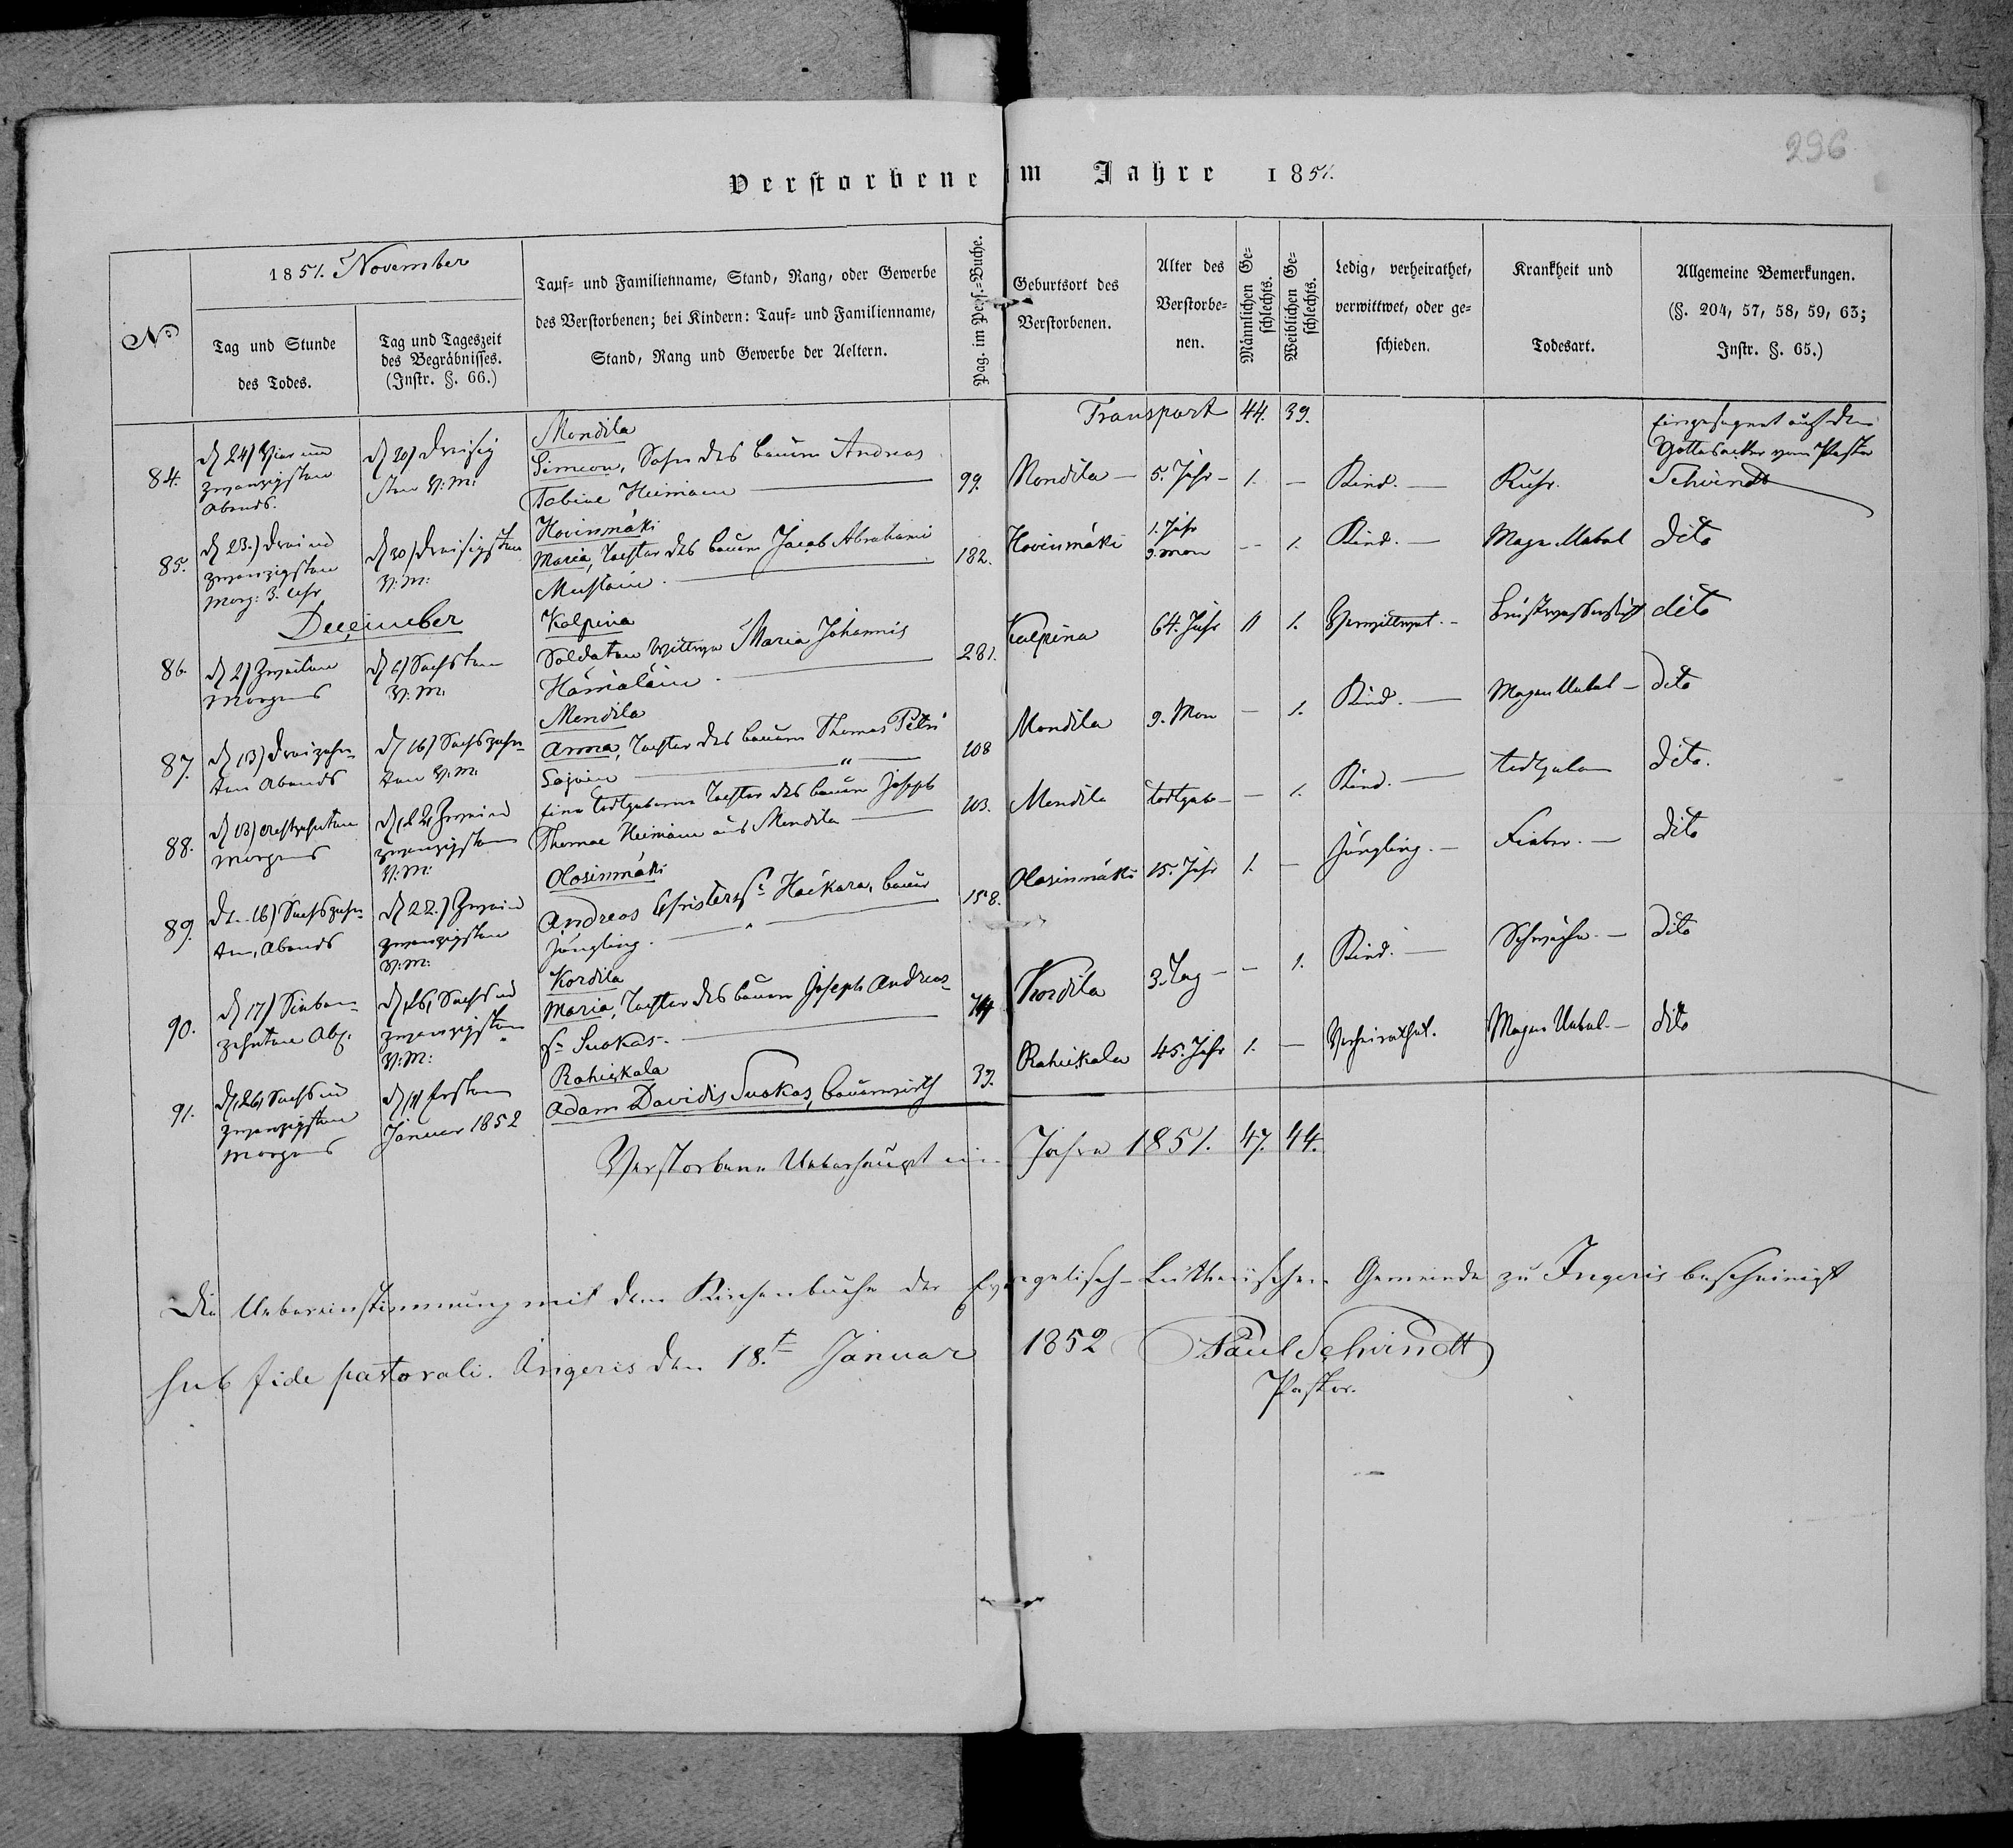 296
Verstorbene im Jahre 1851.
No
1851. November
Tag und Stunde
des Todes.
Tag und Tageszeit
des Begräbnisses.
(Instr. §. 66.)
Tauf- und Familienname, Stand, Rang, oder Gewerbe
des Verstorbenen; bei Kindern: Tauf- und Familienname,
Stand, Rang und Gewerbe der Aeltern.
Pag. im Pers.-Buche.
Geburtsort des
Verstorbenen.
Alter des
Verstorbe-
nen.
Männlichen Ge-
schlechts.
Weiblichen Ge-
schlechts.
Ledig, verheirathet,
verwittwet, oder ge-
schieden.
Krankheit und
Todesart.
Allgemeine Bemerkungen.
(§. 204, 57, 58, 59, 63;
Instr. §. 65.)
Transport 44. 39.
84.
d 24) Vier und
zwanzigsten
Abends.
d 30) Dreisig
sten V: M:
Mondila
Simeon, Sohn des Bauern Andreas
Tobiae Heimäin
99.
Mondila — 5. Jahr — 1. — Kind. — Ruhr.
Eingesegnet auf dem
Gottesacker vom Pastor
Schvindt
85.
d 23.) Drei und
zwanzigsten
Morg: 3. Uhr
d 30) Dreisigsten
V: M:
Hovinmäki
Maria, Tochter des Bauern Jacob Abrahami
Mustain.
182.
Hovinmäki
1. Jahr
9. Mon
— 1. Kind. — Magen Uebel dito
December
86.
d 2) Zweiten
Morgens
d 6) Sechsten
V: M.
Kalpina
Soldaten Wittwe Maria Johannis
Hämäläin.
281.
Kalpina 64. Jahr 11 1. Verwittwet. — Brustwassersucht dito
87.
d 13) Dreizehn-
ten Abends
d 16) Sechszehn-
ten V. M.
Mondila
Anna, Tochter des Bauern Thomas Petri
Sojoin
108
Mondila 9. Mon — 1. Kind. — Magen Uebel — dito
88.
d 18) Achtzehnten
Morgens
d 22) Zwei und
zwanzigsten
V: M:
Eine Todtgeborne Tochter des Bauern Joseph
Thomae Heimäin aus Mondila
103.
Mondila todtgebo — — 1. Kind. — dito.
89.
d. 16) Sechszehn-
ten, Abends
d 22.) Zwei und
zwanzigsten
V: M:
Olosinmäki
Andreas Christers S: Haikara, Bauer
Jüngling.
158.
Olosinmäki 15. Jahr 1. — Jüngling. — Fieber. — dito
90.
d 17) Sieben-
zehnten Ab:
d 26) Sechs und
zwanzigsten
V: M:
Kordila
Maria, Tochter des Bauern Joseph Andreas
S: Suokas.
74
Kordila 3. Tag — — 1. Kind. — Schwäche. — dito
91.
d 26) Sechs und
zwanzigsten
Morgens
d 1) Ersten
Januar 1852
Rahickala
Adam Davidis Suokas, Bauerwirth
39.
Rahickala 45. Jahr 1. — Verheirathet. Magen Uebel. — dito
Verstorbene Ueberhaupt im Jahre 1851. 47. 44.
Die Uebereinstimmung mit dem Kirchenbuche der Evangelisch-Lutherischen Gemeinde zu Ingeris bescheinigt
sub fide pastorali. Ingeris den 18.t Januar 1852 Paul Schvindt
Pastor.